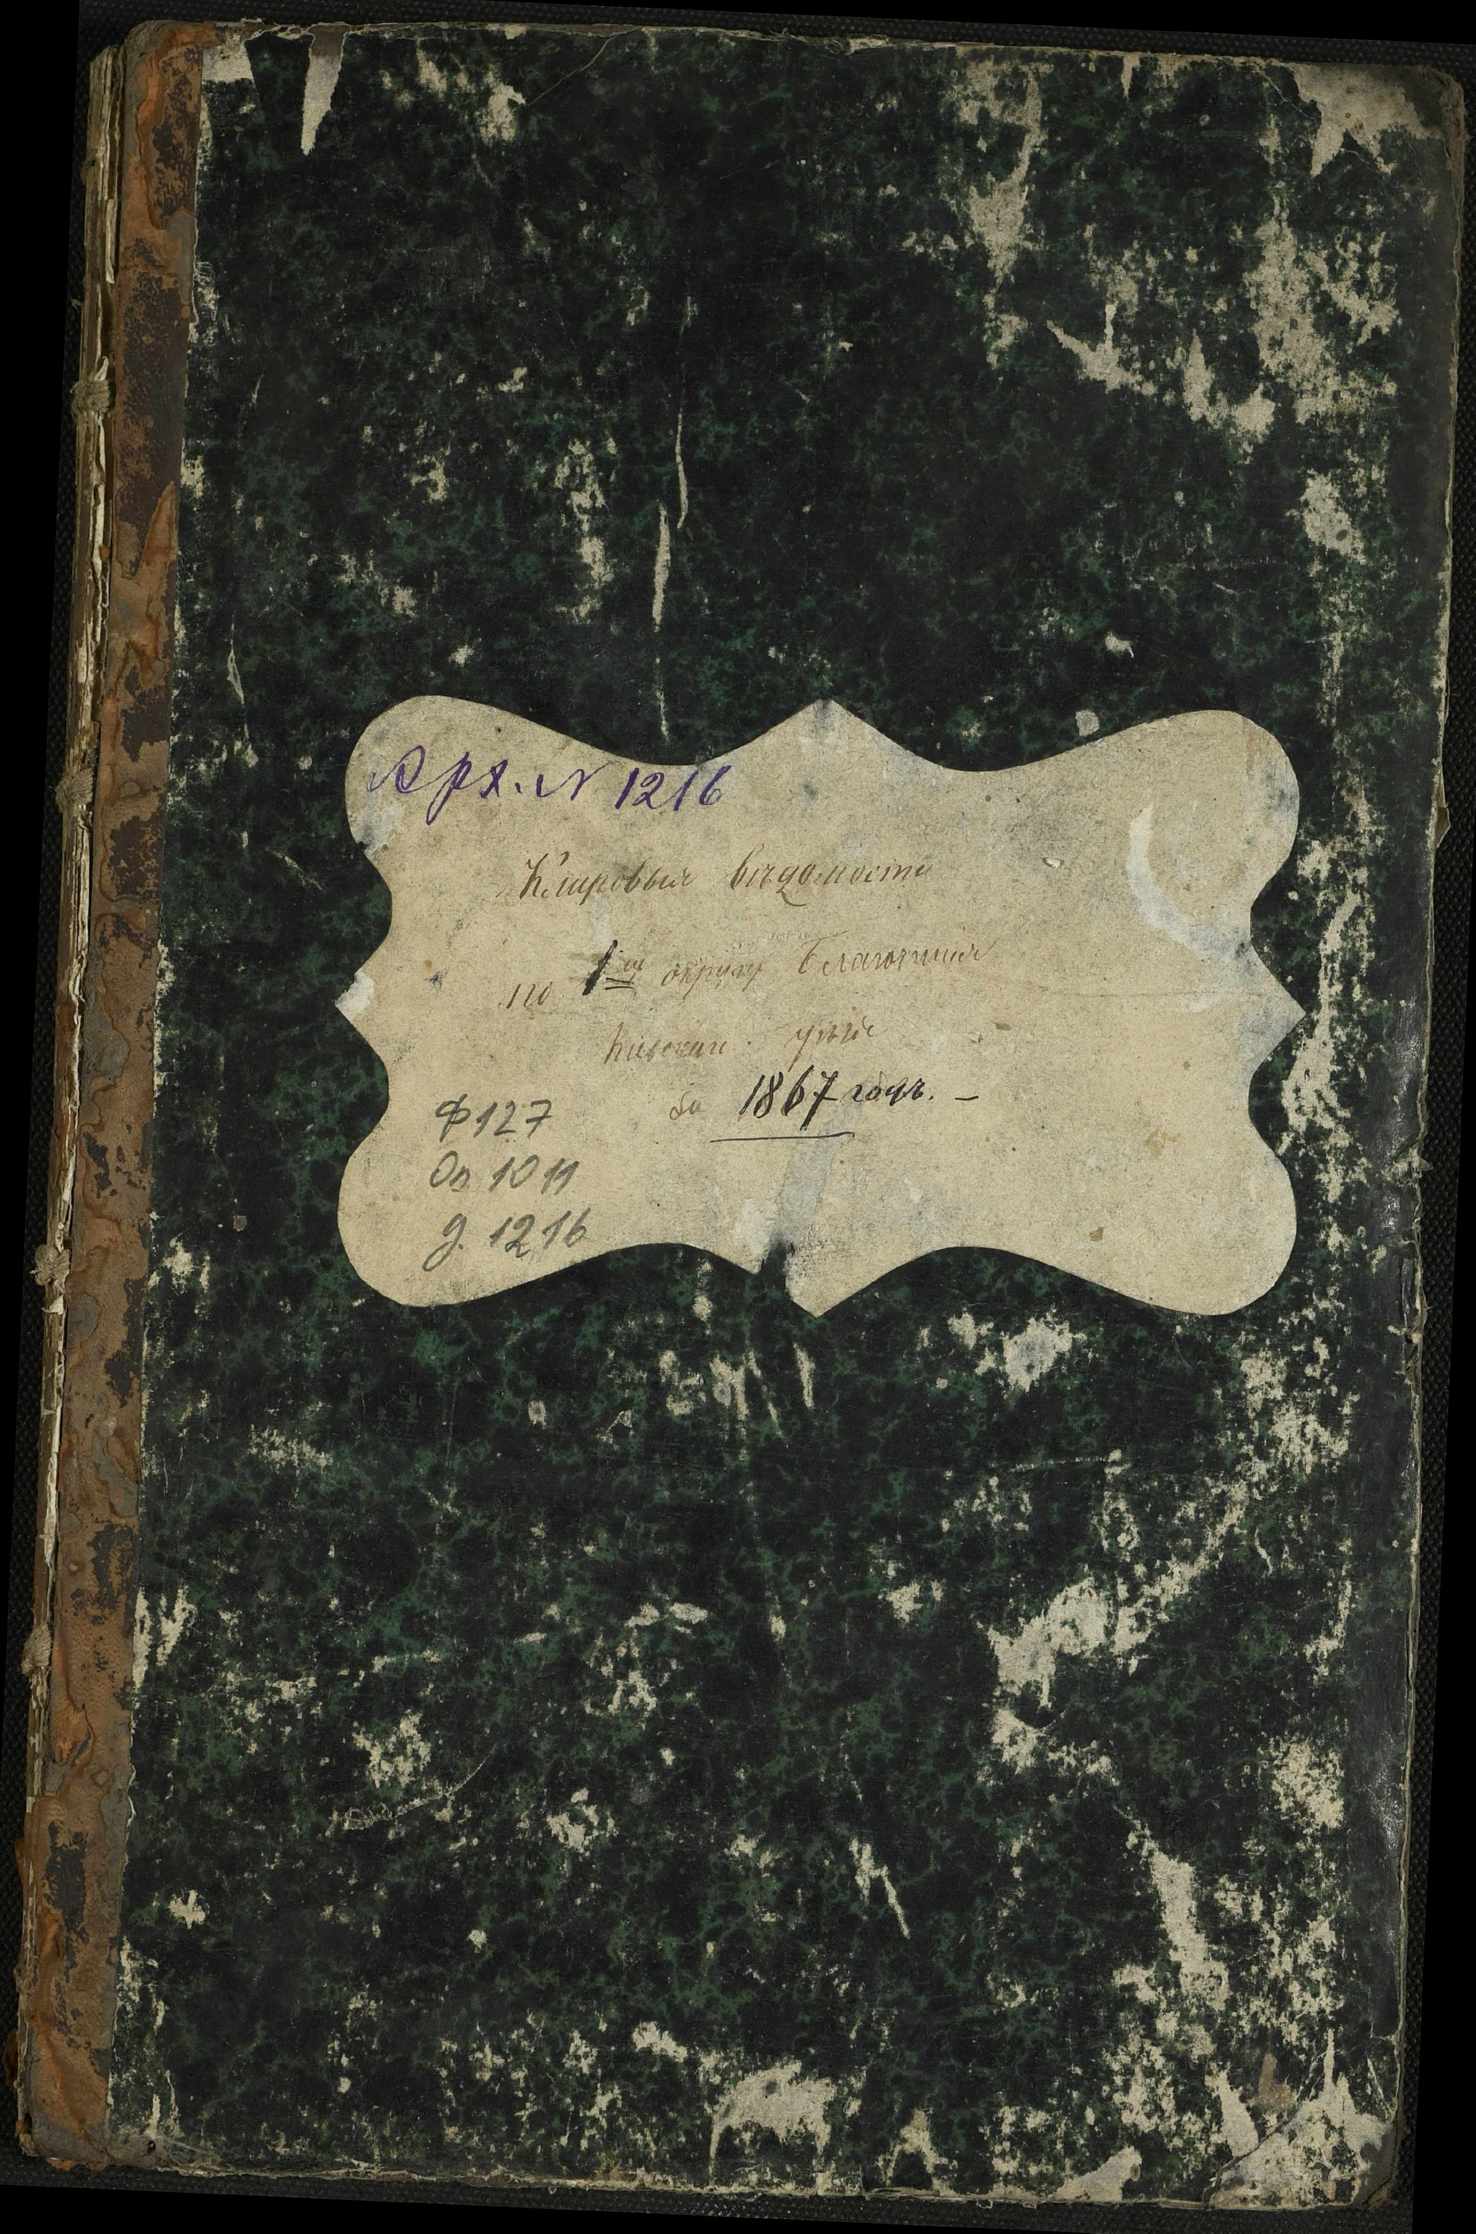 Арх. N 1216
Клировыя вѣдомости
по 1му округу Благочинія
Кіевскаго уѣзда
За 1867 годъ. —
Ф 127
Оп 1011
д. 1216